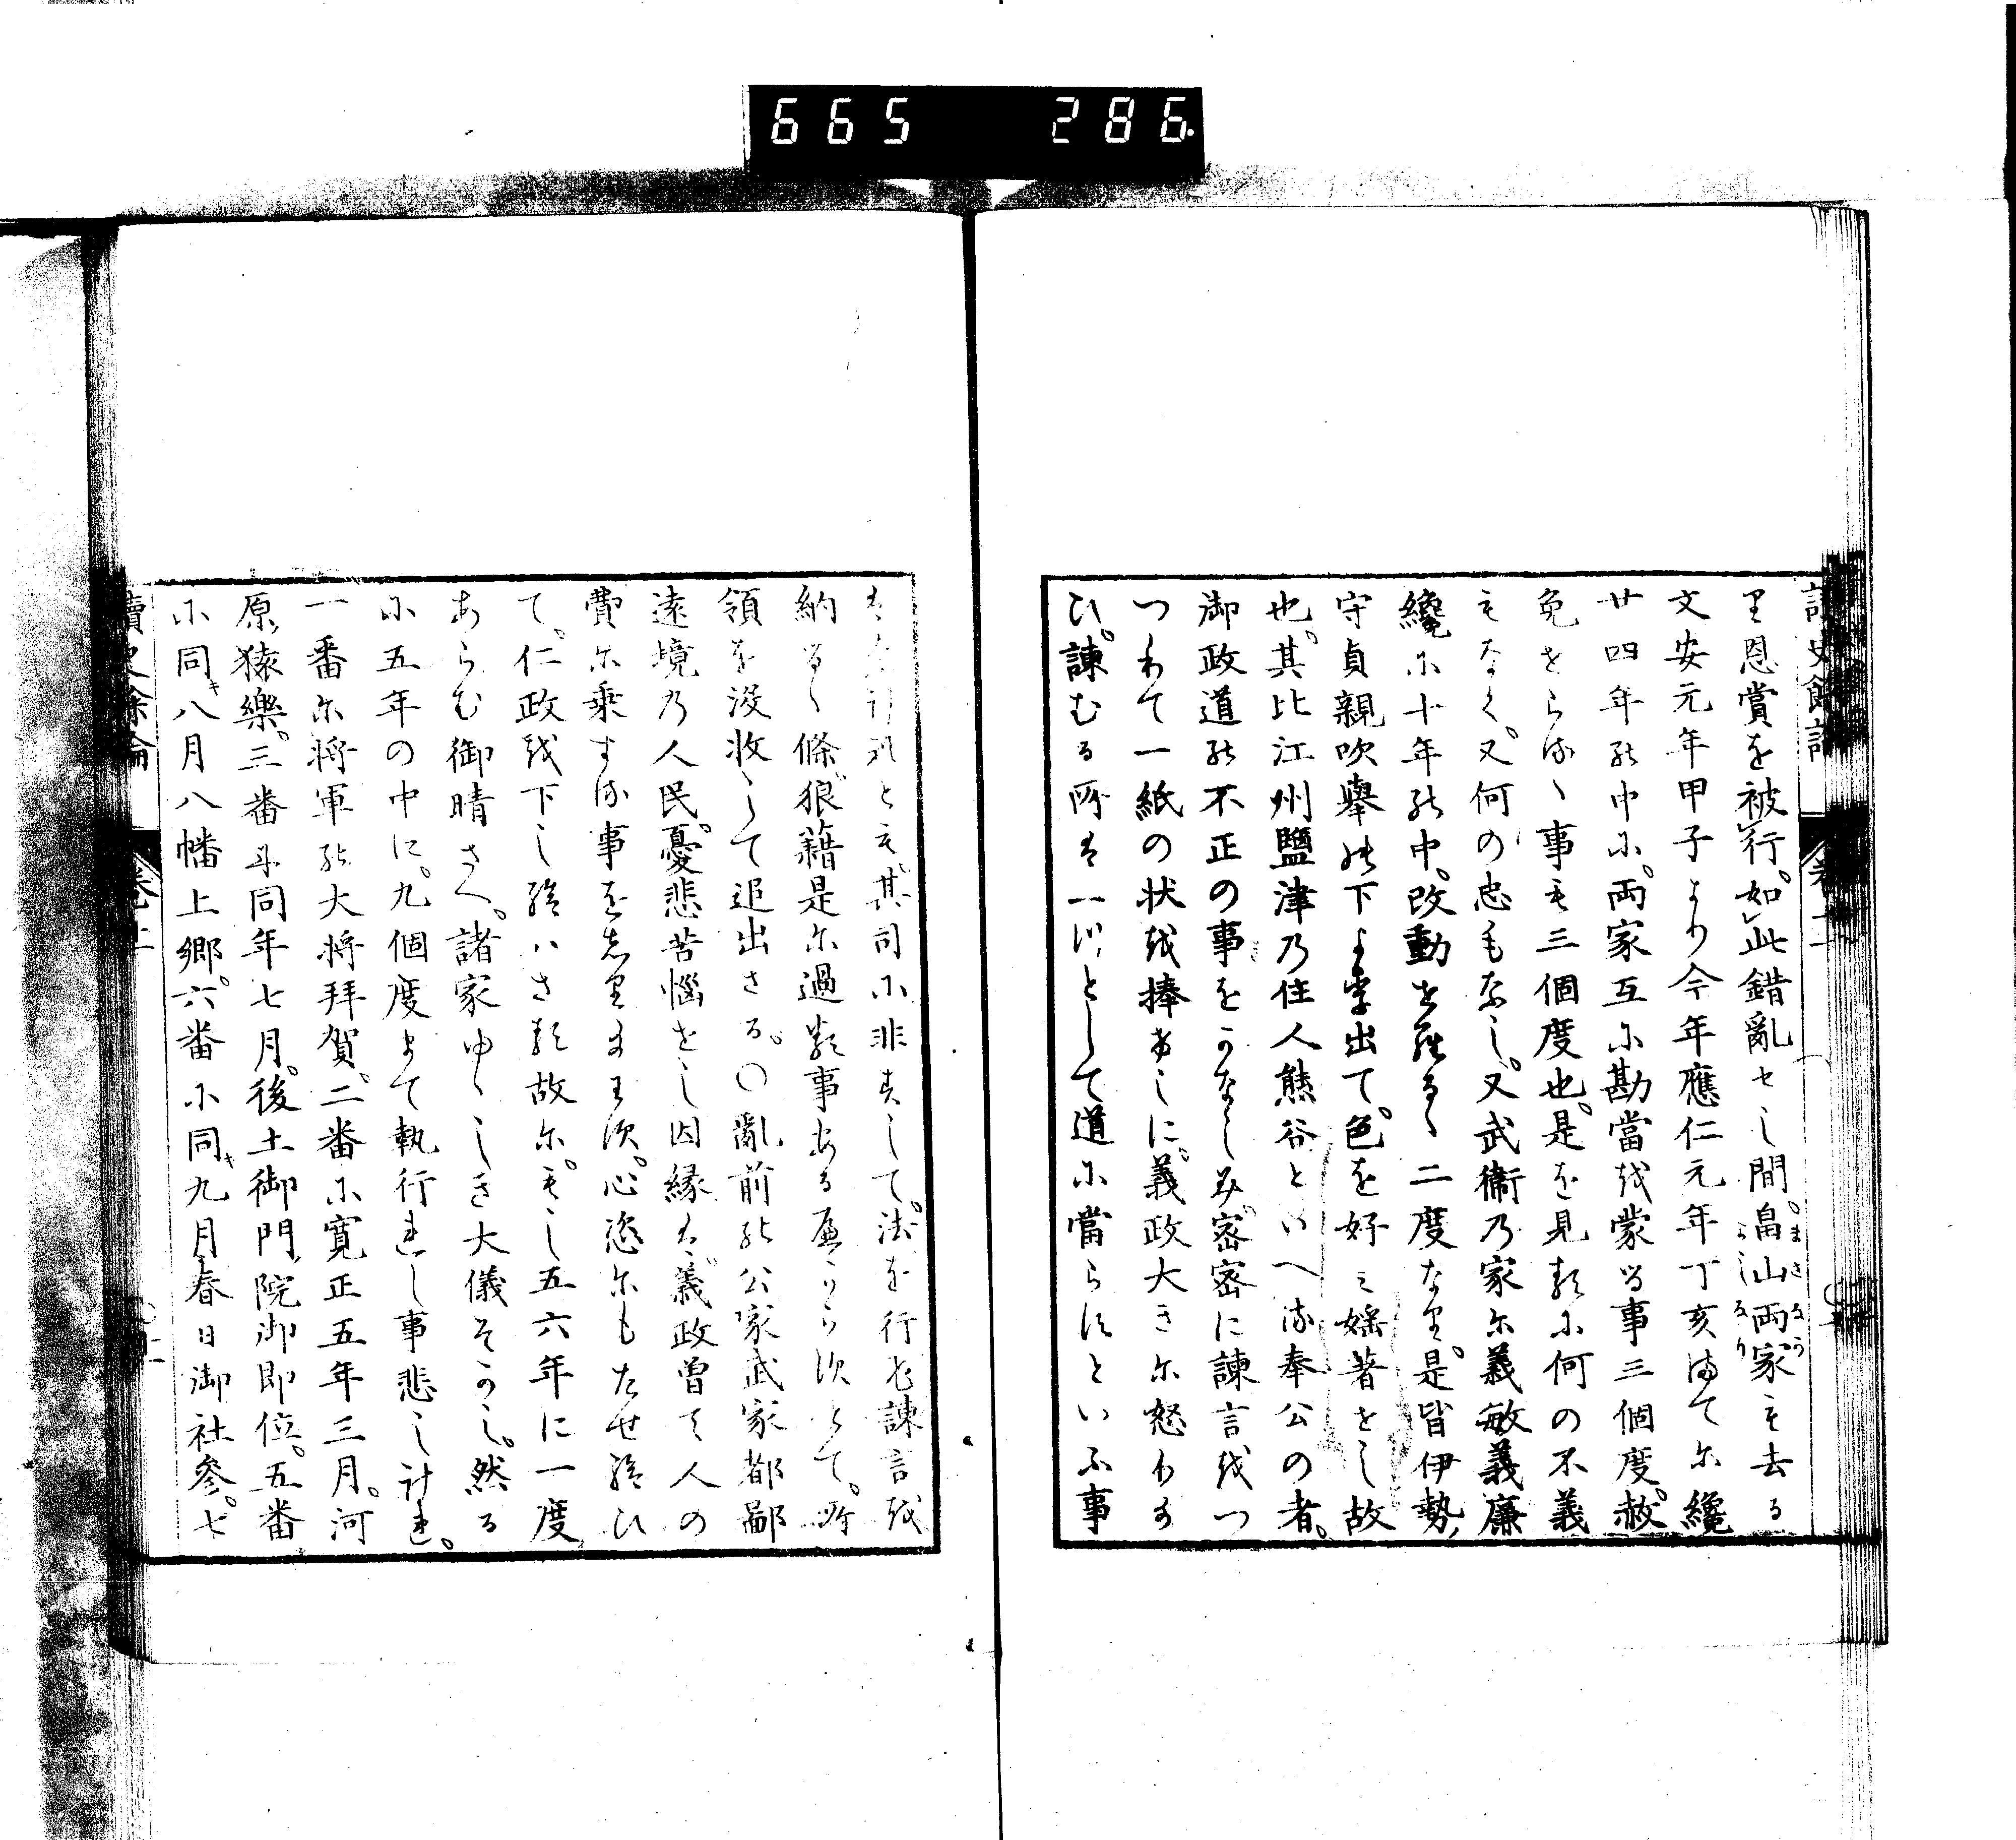 665 286
り恩賞を被行。如此錯亂せし間。畠山両家も去る
まさなか
よしなり
文安元年甲子より今年應仁元年丁亥まてに纔
廿四年の中に。両家互に勘當を蒙る事三個度。赦
免せらるゝ事も三個度也。是を見るに何の不義
もなく。又何の忠もなし。又武衞乃家に義敏義廉
纔に十年の中。改動せらるゝ二度なり。是皆伊勢
守貞親吹舉の下より出て。色を好み婬著をし故
也。其比江州鹽津乃住人熊谷といへる奉公の者。
御政道の不正の事をかなしみ。密密に諫言をつ
つりて一紙の状を捧けしに。義政大きに怒り給
ひ。諫むる所は一つとして道に當らすといふ事
とも。其司に非すして。法を行ひ諫言を
納るゝ條。狼藉是に過る事あるへからすとて。所
領を没收して追出さる。〇亂前の公家武家都鄙
遠境乃人民。憂悲苦惱せし因縁は。義政曾て人の
費に乗する事をしり給はす。心恣にもたせ給ひ
て。仁政を下し給はさる故に。もし五六年に一度
あらむ御晴さへ。諸家ゆゝしき大儀そかし。然る
に五年の中に。九個度まて執行れし事悲し計れ。
一番に将軍の大将拜賀。二番に寛正五年三月。河
原猿樂。三番に同年七月。後土御門院御即位。五番
に同キ八月八幡上郷。六番に同キ九月春日御社參。七
讀史餘論 卷十二